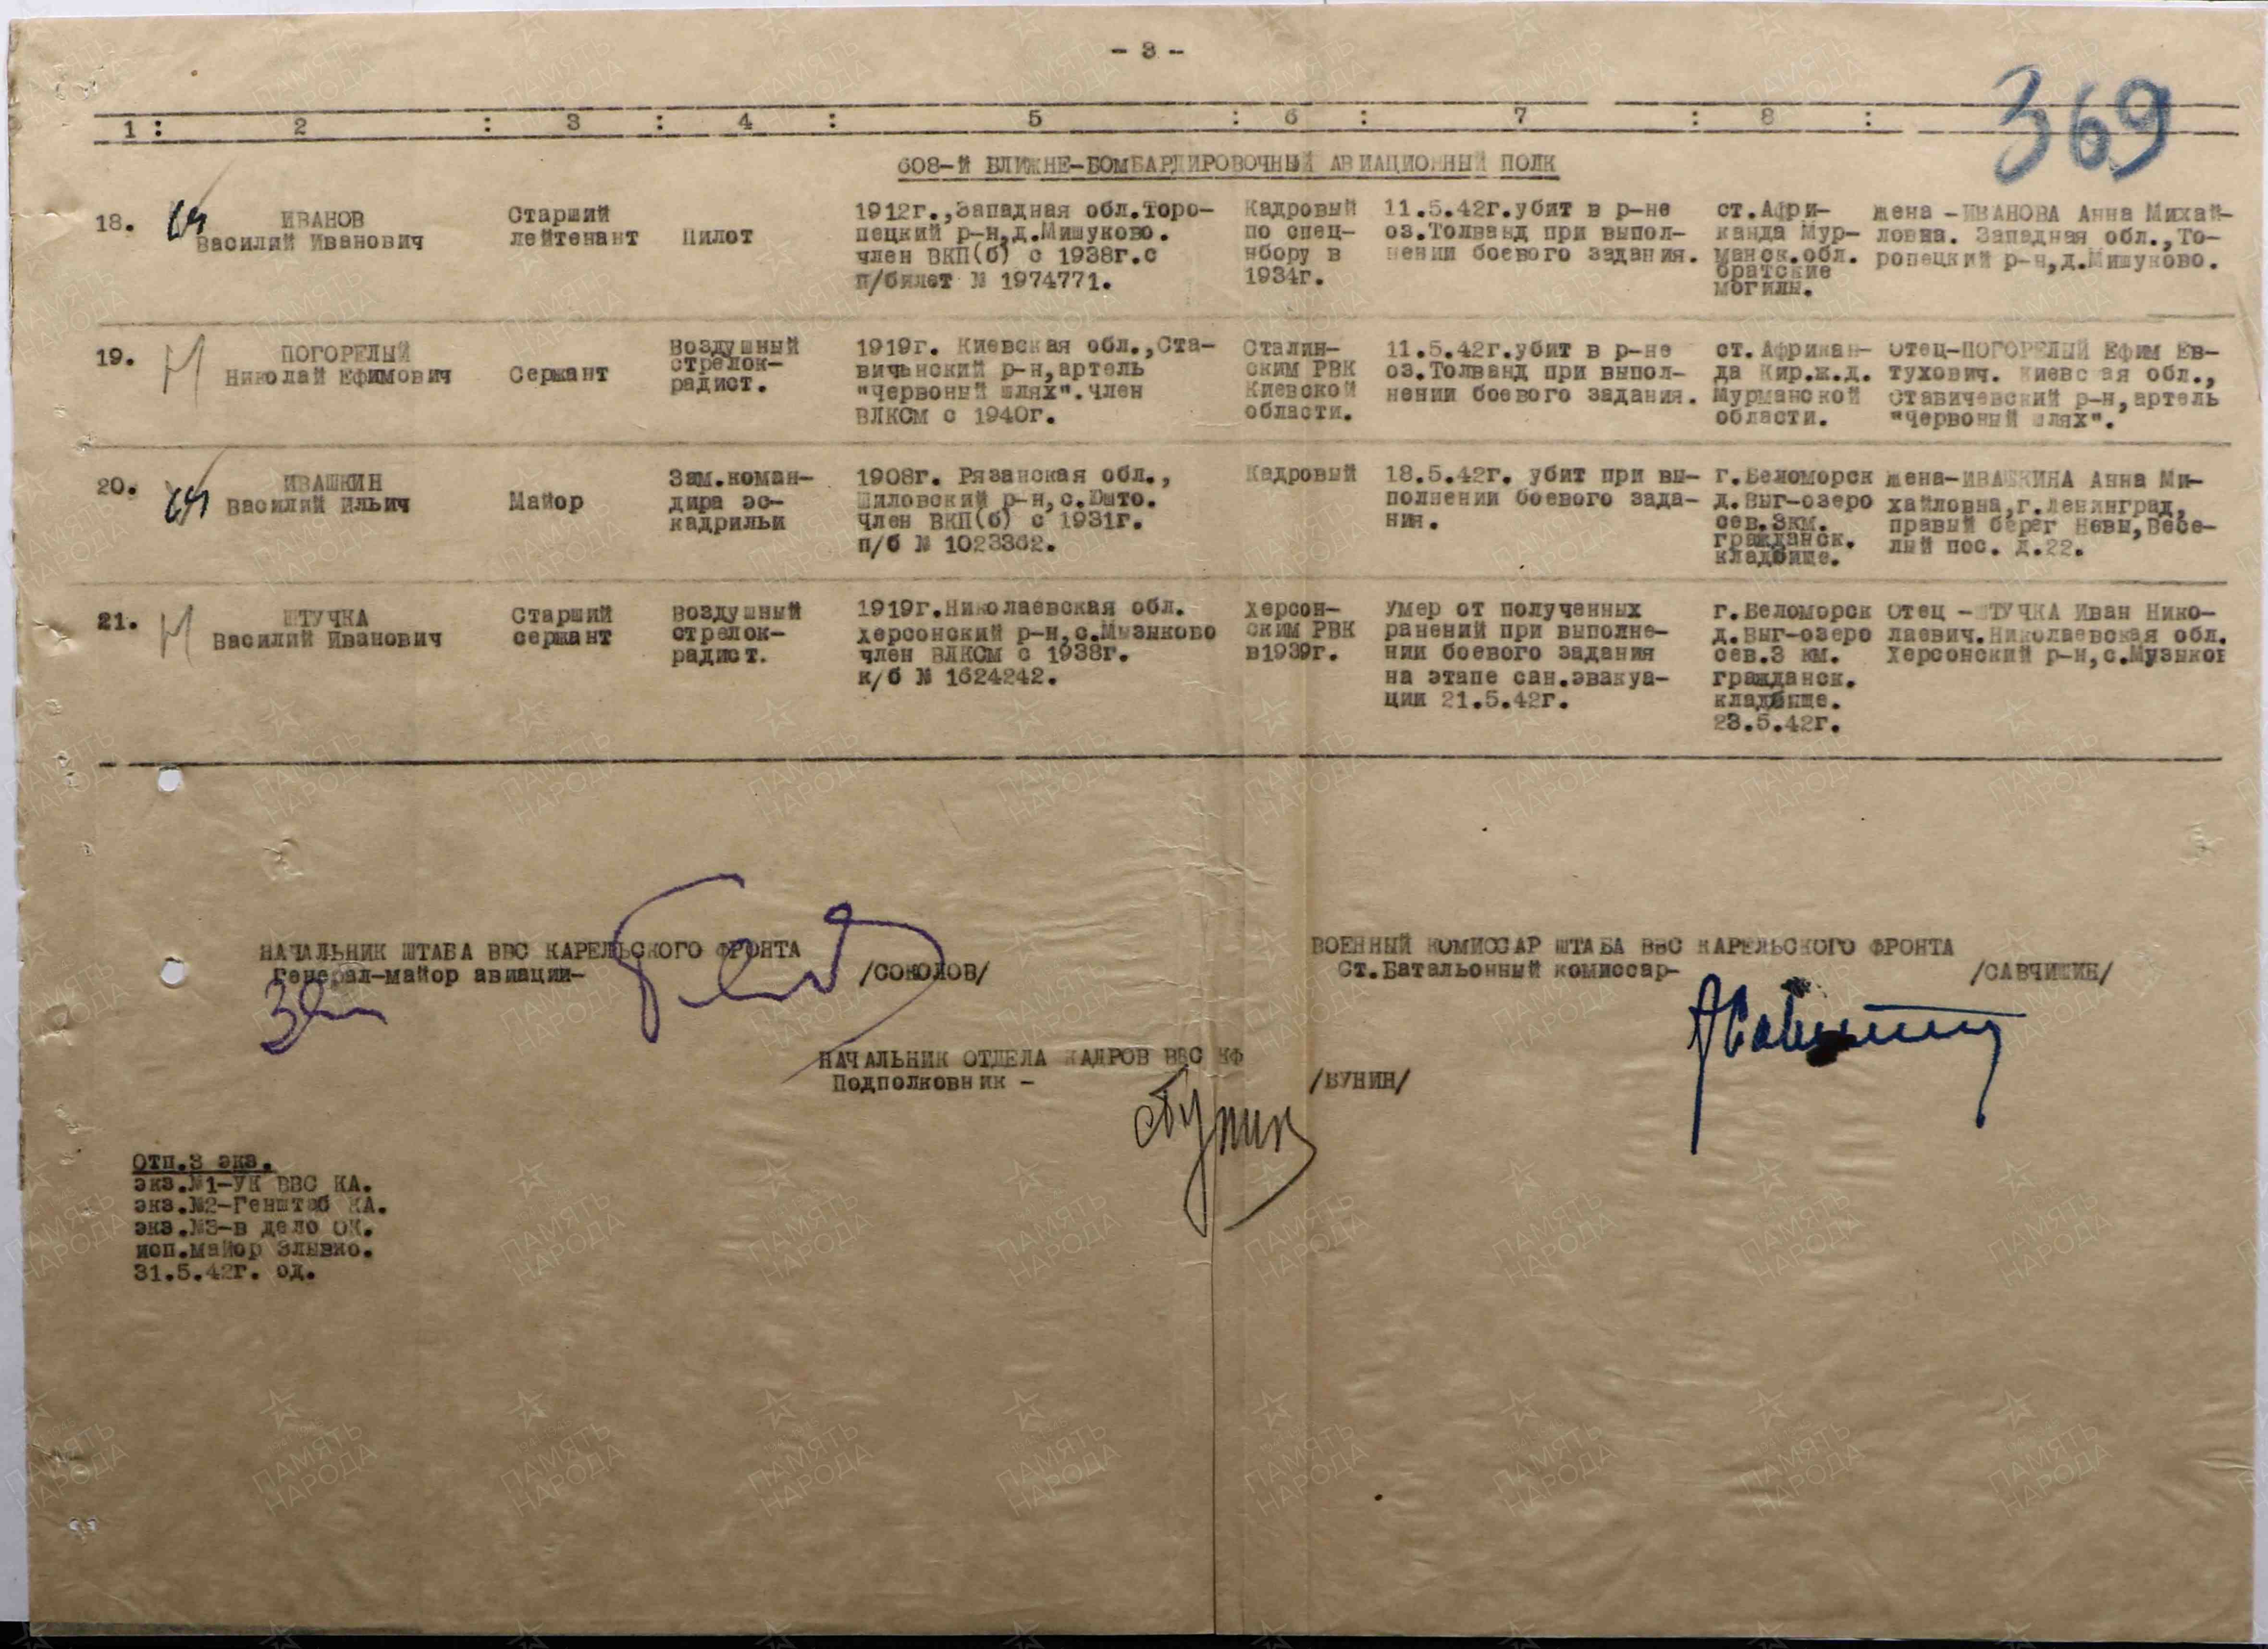 - 3 -
369
1 : 2 : 3 : 4 : 5 : 6 : 7 : 8 :
608-Й БЛИЖНЕ-БОМБАРДИРОВОЧНЫЙ АВИАЦИОННЫЙ ПОЛК
18. ИВАНОВ
Василий Иванович
Старший
лейтенант
Пилот
1912г.,Западная обл.Торо-
пецкий р-н,д.Мишуково.
член ВКП(б) с 1938г.с
п/билет № 1974771.
Кадровый
по спец-
набору в
1934г.
11.5.42г.убит в р-не
оз.Толванд при выпол-
нении боевого задания.
ст.Афри-
канда Мур-
манск.обл.
братские
могилы.
жена -ИВАНОВА Анна Михай-
ловна. Западная обл.,То-
ропецкий р-н,д.Мишуково.
19. ПОГОРЕЛЫЙ
Николай Ефимович
Сержант
Воздушный
стрелок-
радист.
1919г. Киевская обл.,Ста-
вичанский р-н,артель
"Червоный шлях".член
ВЛКСМ с 1940г.
Сталин-
ским РВК
Киевской
области.
11.5.42г.убит в р-не
оз.Толванд при выпол-
нении боевого задания.
ст. Африкан-
да Кир.ж.д.
Мурманской
области.
Отец-ПОГОРЕЛЫЙ Ефим Ев-
тухович. Киевская обл.,
Ставичевский р-н,артель
"Червоный шлях".
20. ИВАШКИН
Василий Ильич
Майор
Зам.коман-
дира эс-
кадрильи
1908г. Рязанская обл.,
Шиловский р-н,с.Юшто.
Член ВКП(б) с 1931г.
п/б № 1023362.
Кадровый
18.5.42г. убит при вы-
полнении боевого зада-
ния.
г.Беломорск
д.Выг-озеро
сев.3км.
гражданск.
кладбище.
жена-ИВАШКИНА Анна Ми-
хайловна,г.Ленинград,
правый берег Невы,Весе-
лый пос. д.22.
21. ШТУЧКА
Василий Иванович
Старший
сержант
Воздушный
стрелок-
радист.
1919г.Николаевская обл.
Херсонский р-н,с.Музыково
член ВЛКСМ с 1938г.
к/б № 1624242.
Херсон-
ским РВК
в1939г.
Умер от полученных
ранений при выполне-
нии боевого задания
на этапе сан.эвакуа-
ции 21.5.42г.
г.Беломорск
д.Выг-озеро
сев.3 км.
гражданск.
кладбище.
23.5.42г.
Отец -ШТУЧКА Иван Нико-
лаевич.Николаевская обл.
Херсонский р-н,с.Музыков
НАЧАЛЬНИК ШТАБА ВВС КАРЕЛЬСКОГО ФРОНТА
Генерал-майор авиации- /СОКОЛОВ/
ВОЕННЫЙ КОМИССАР ШТАБА ВВС КАРЕЛЬСКОГО ФРОНТА
Ст.Батальонный комиссар- /САВЧИШИН/
НАЧАЛЬНИК ОТДЕЛА КАДРОВ ВВС КФ
Подполковник - /БУНИН/
Отп.3 экз.
экз.№1-УК ВВС КА.
экз.№2-Генштаб КА.
экз.№3-в дело ОК.
исп.майор Злывко.
31.5.42г. од.
ПАМЯТЬ
НАРОДА